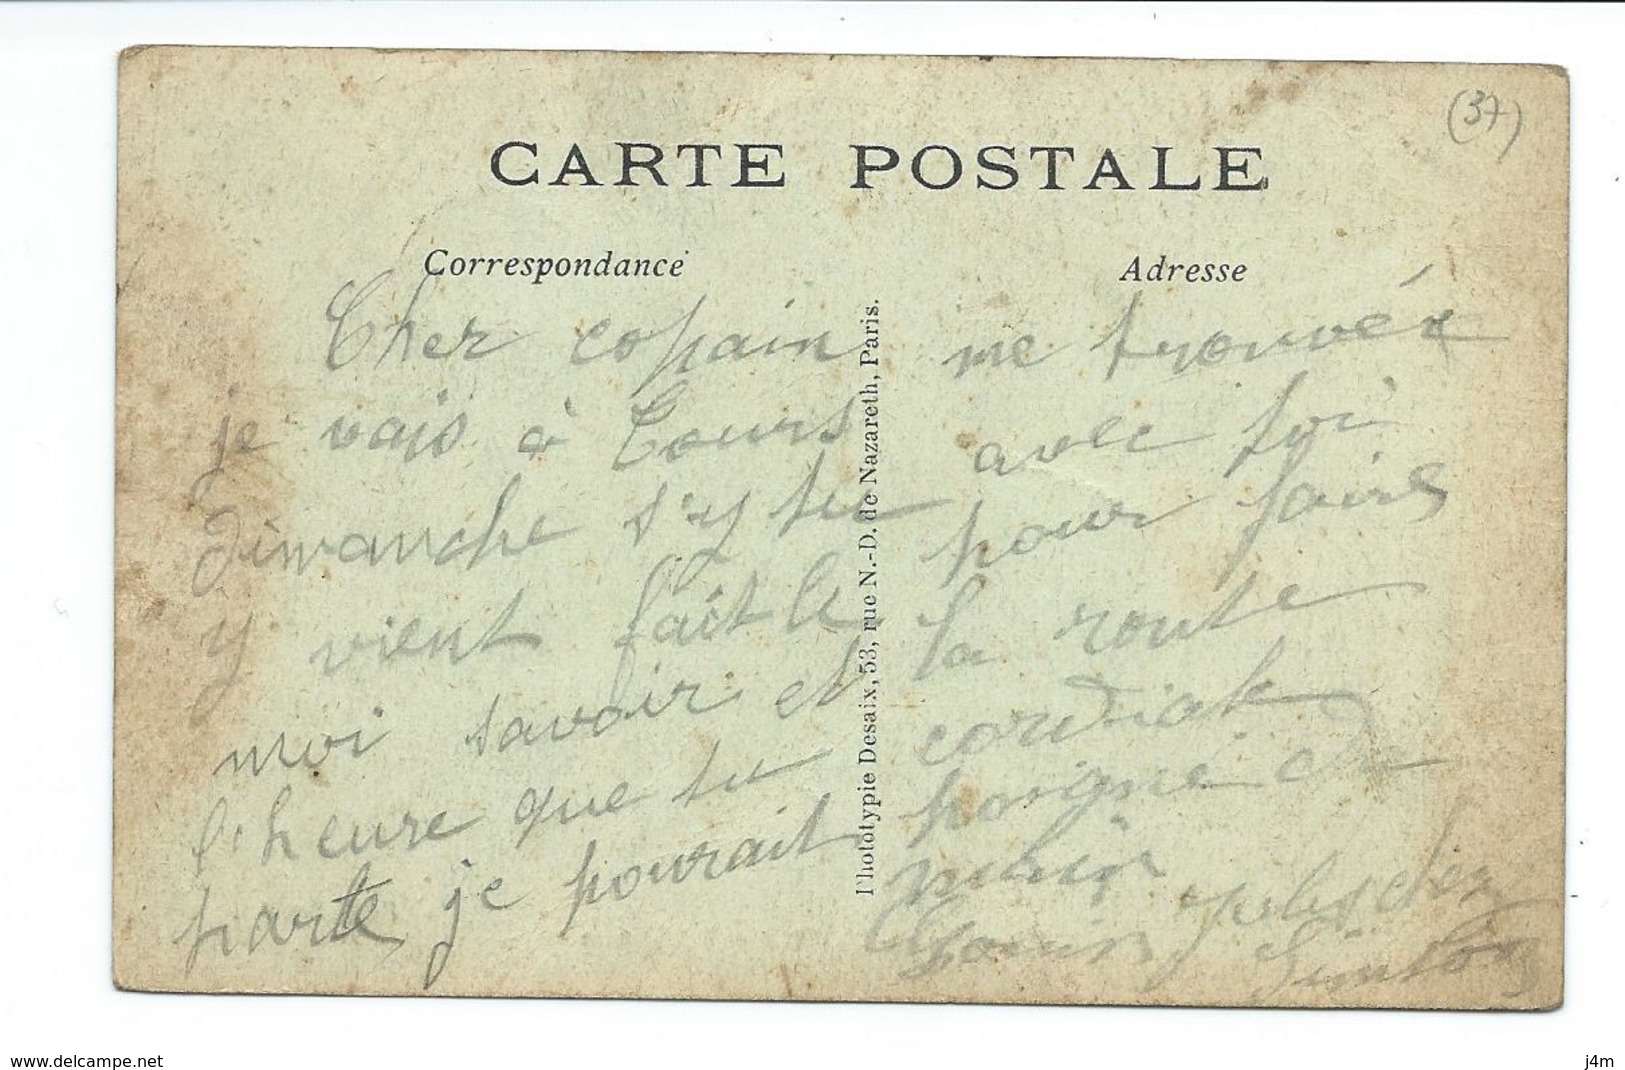 (37)
CARTE POSTALE
Correspondance
Adresse
Cher copain
je vais à Tours
Dimanche s'y tu
y vient fait le
moi savoir et
l'heure que tu
parte je pourrait
Phototypie Desaix, 53, rue N.-D. de Nazareth, Paris.
me trouvér
avec toi
pour faire
la route
cordiale
poigné de
main
Louis
www.delcampe.net
j4m